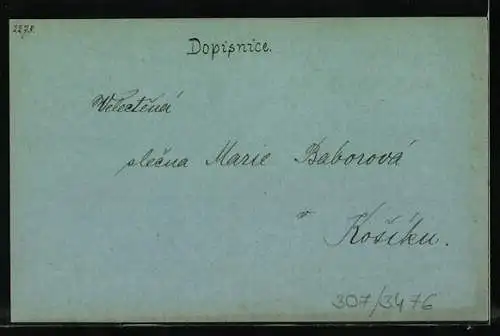 2278.
Dopisnice.
Velectěná
slečna Marie Baborová
v
Košíku.
307/3476